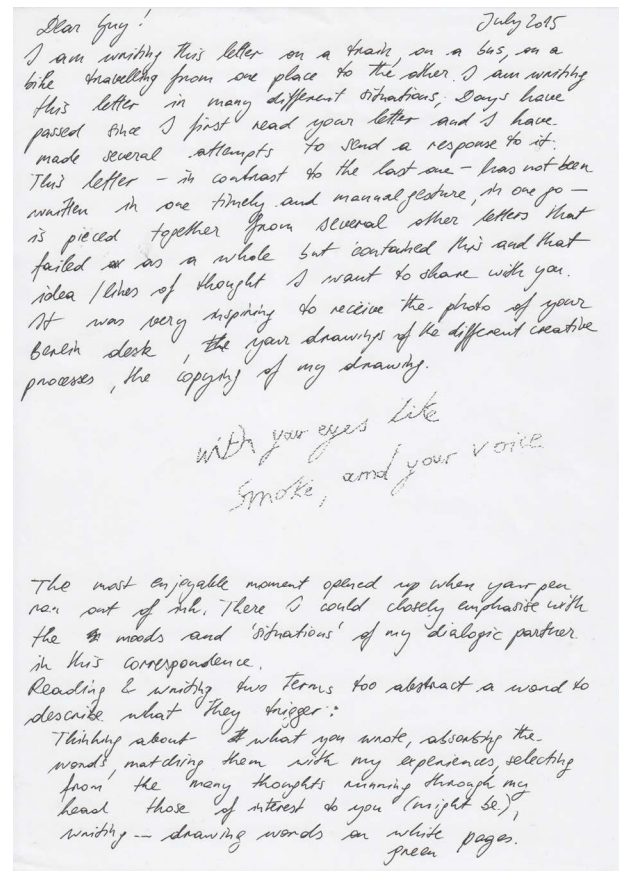 Dear Guy! July 2015
I am writing this letter on a train, on a bus, on a
bike travelling from one place to the other. I am writing
this letter in many different situations; Days have
passed since I first read your letter and I have
made several attempts to send a response to it.
This letter – in contrast to the last one – has not been
written in one timely and manual gesture, in one go –
is pieced together from several other letters that
failed as a whole but contained this and that
idea / lines of thought I want to share with you.
It was very inspiring to receive the photo of your
Berlin desk, your drawings of the different creative
processes, the copying of my drawing.
with your eyes like
smoke, and your voice
The most enjoyable moment opened up when your pen
ran out of ink. There I could closely emphasise with
the moods and 'situations' of my dialogic partner
in this correspondence.
Reading & writing two Terms too abstract a word to
describe what they trigger:
Thinking about what you wrote, absorbing the
words, matching them with my experiences, selecting
from the many thoughts running through my
head those of interest to you (might be),
writing -- drawing words on white
green pages.